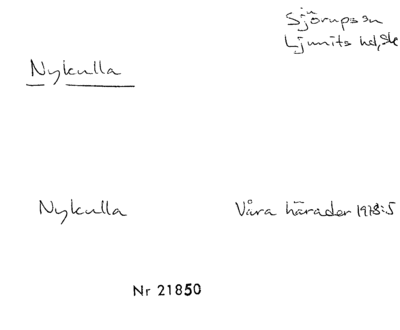 Sjörups sn
Ljunits hd, Sk
Nykulla
Nykulla Våra härader 1978:5
Nr 21850